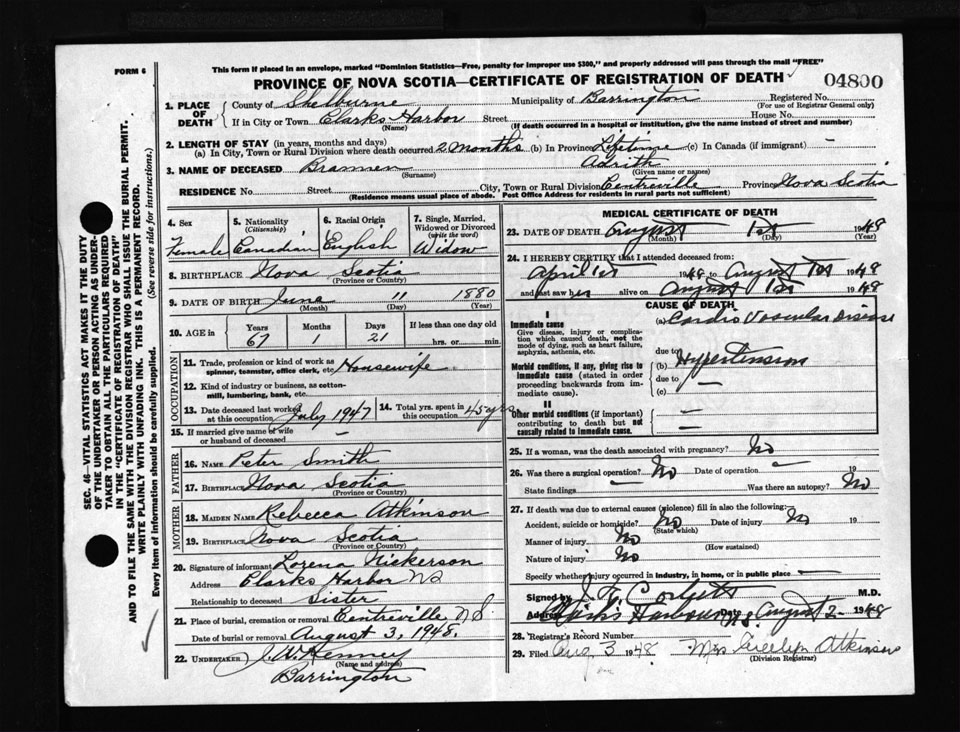 FORM 6
This form if placed in an envelope, marked "Dominion Statistics—Free, penalty for improper use $300," and properly addressed will pass through the mail "FREE"
PROVINCE OF NOVA SCOTIA—CERTIFICATE OF REGISTRATION OF DEATH
04800
1. PLACE OF DEATH
County of Shelburne Municipality of Barrington Registered No.
(For use of Registrar General only)
If in City or Town Clarks Harbor Street House No.
(Name) (If death occurred in a hospital or institution, give the name instead of street and number)
2. LENGTH OF STAY (in years, months and days)
(a) In City, Town or Rural Division where death occurred 2 months (b) In Province Lifetime (c) In Canada (if immigrant) —
3. NAME OF DECEASED Brannen Adrith
(Surname) (Given name or names)
RESIDENCE No. Street City, Town or Rural Division Centreville Province Nova Scotia
(Residence means usual place of abode. Post Office Address for residents in rural parts not sufficient)
4. Sex Female
5. Nationality (Citizenship) Canadian
6. Racial Origin English
7. Single, Married, Widowed or Divorced (write the word) Widow
8. BIRTHPLACE Nova Scotia
(Province or Country)
9. DATE OF BIRTH June 11 1880
(Month) (Day) (Year)
10. AGE in Years 67 Months 1 Days 21 If less than one day old hrs. or min.
OCCUPATION
11. Trade, profession or kind of work as spinner, teamster, office clerk, etc. Housewife
12. Kind of industry or business, as cotton-mill, lumbering, bank, etc.
13. Date deceased last worked at this occupation July 1947
14. Total yrs. spent in this occupation 45 yrs
15. If married give name of wife or husband of deceased
FATHER
16. NAME Peter Smith
17. BIRTHPLACE Nova Scotia
(Province or Country)
MOTHER
18. MAIDEN NAME Rebecca Atkinson
19. BIRTHPLACE Nova Scotia
(Province or Country)
20. Signature of informant Lorena Nickerson
Address Clarks Harbor NS
Relationship to deceased Sister
21. Place of burial, cremation or removal Centreville N.S.
Date of burial or removal August 3, 1948.
22. UNDERTAKER J. W. Kenney
(Name and address)
Barrington
MEDICAL CERTIFICATE OF DEATH
23. DATE OF DEATH August 1st 1948
(Month) (Day) (Year)
24. I HEREBY CERTIFY that I attended deceased from:
April 1st 1948 to August 1st 1948
and last saw her alive on August 1st 1948
CAUSE OF DEATH
I
Immediate cause
Give disease, injury or complication which caused death, not the mode of dying, such as heart failure, asphyxia, asthenia, etc.
(a) Cardio Vascular Disease
due to
Morbid conditions, if any, giving rise to immediate cause (stated in order proceeding backwards from immediate cause).
(b) Hypertension
due to —
(c)
II
Other morbid conditions (if important) contributing to death but not causally related to immediate cause.
—
—
25. If a woman, was the death associated with pregnancy? No
26. Was there a surgical operation? No Date of operation — 19
State findings — Was there an autopsy? No
27. If death was due to external causes (violence) fill in also the following:—
Accident, suicide or homicide? No Date of injury No 19
(State which)
Manner of injury No
(How sustained)
Nature of injury No
Specify whether injury occurred in industry, in home, or in public place —
Signed by M.D.
Address Clark's Harbour N.S. Date August 2 1948
28. Registrar's Record Number
29. Filed Aug 3 1948 Mrs Atkinson
(Division Registrar)
SEC. 46—VITAL STATISTICS ACT MAKES IT THE DUTY
OF THE UNDERTAKER OR PERSON ACTING AS UNDERTAKER
TO OBTAIN ALL THE PARTICULARS REQUIRED
IN THE "CERTIFICATE OF REGISTRATION OF DEATH"
AND TO FILE THE SAME WITH THE DIVISION REGISTRAR WHO SHALL ISSUE THE BURIAL PERMIT.
WRITE PLAINLY WITH UNFADING INK. THIS IS A PERMANENT RECORD.
Every item of Information should be carefully supplied. (See reverse side for instructions.)